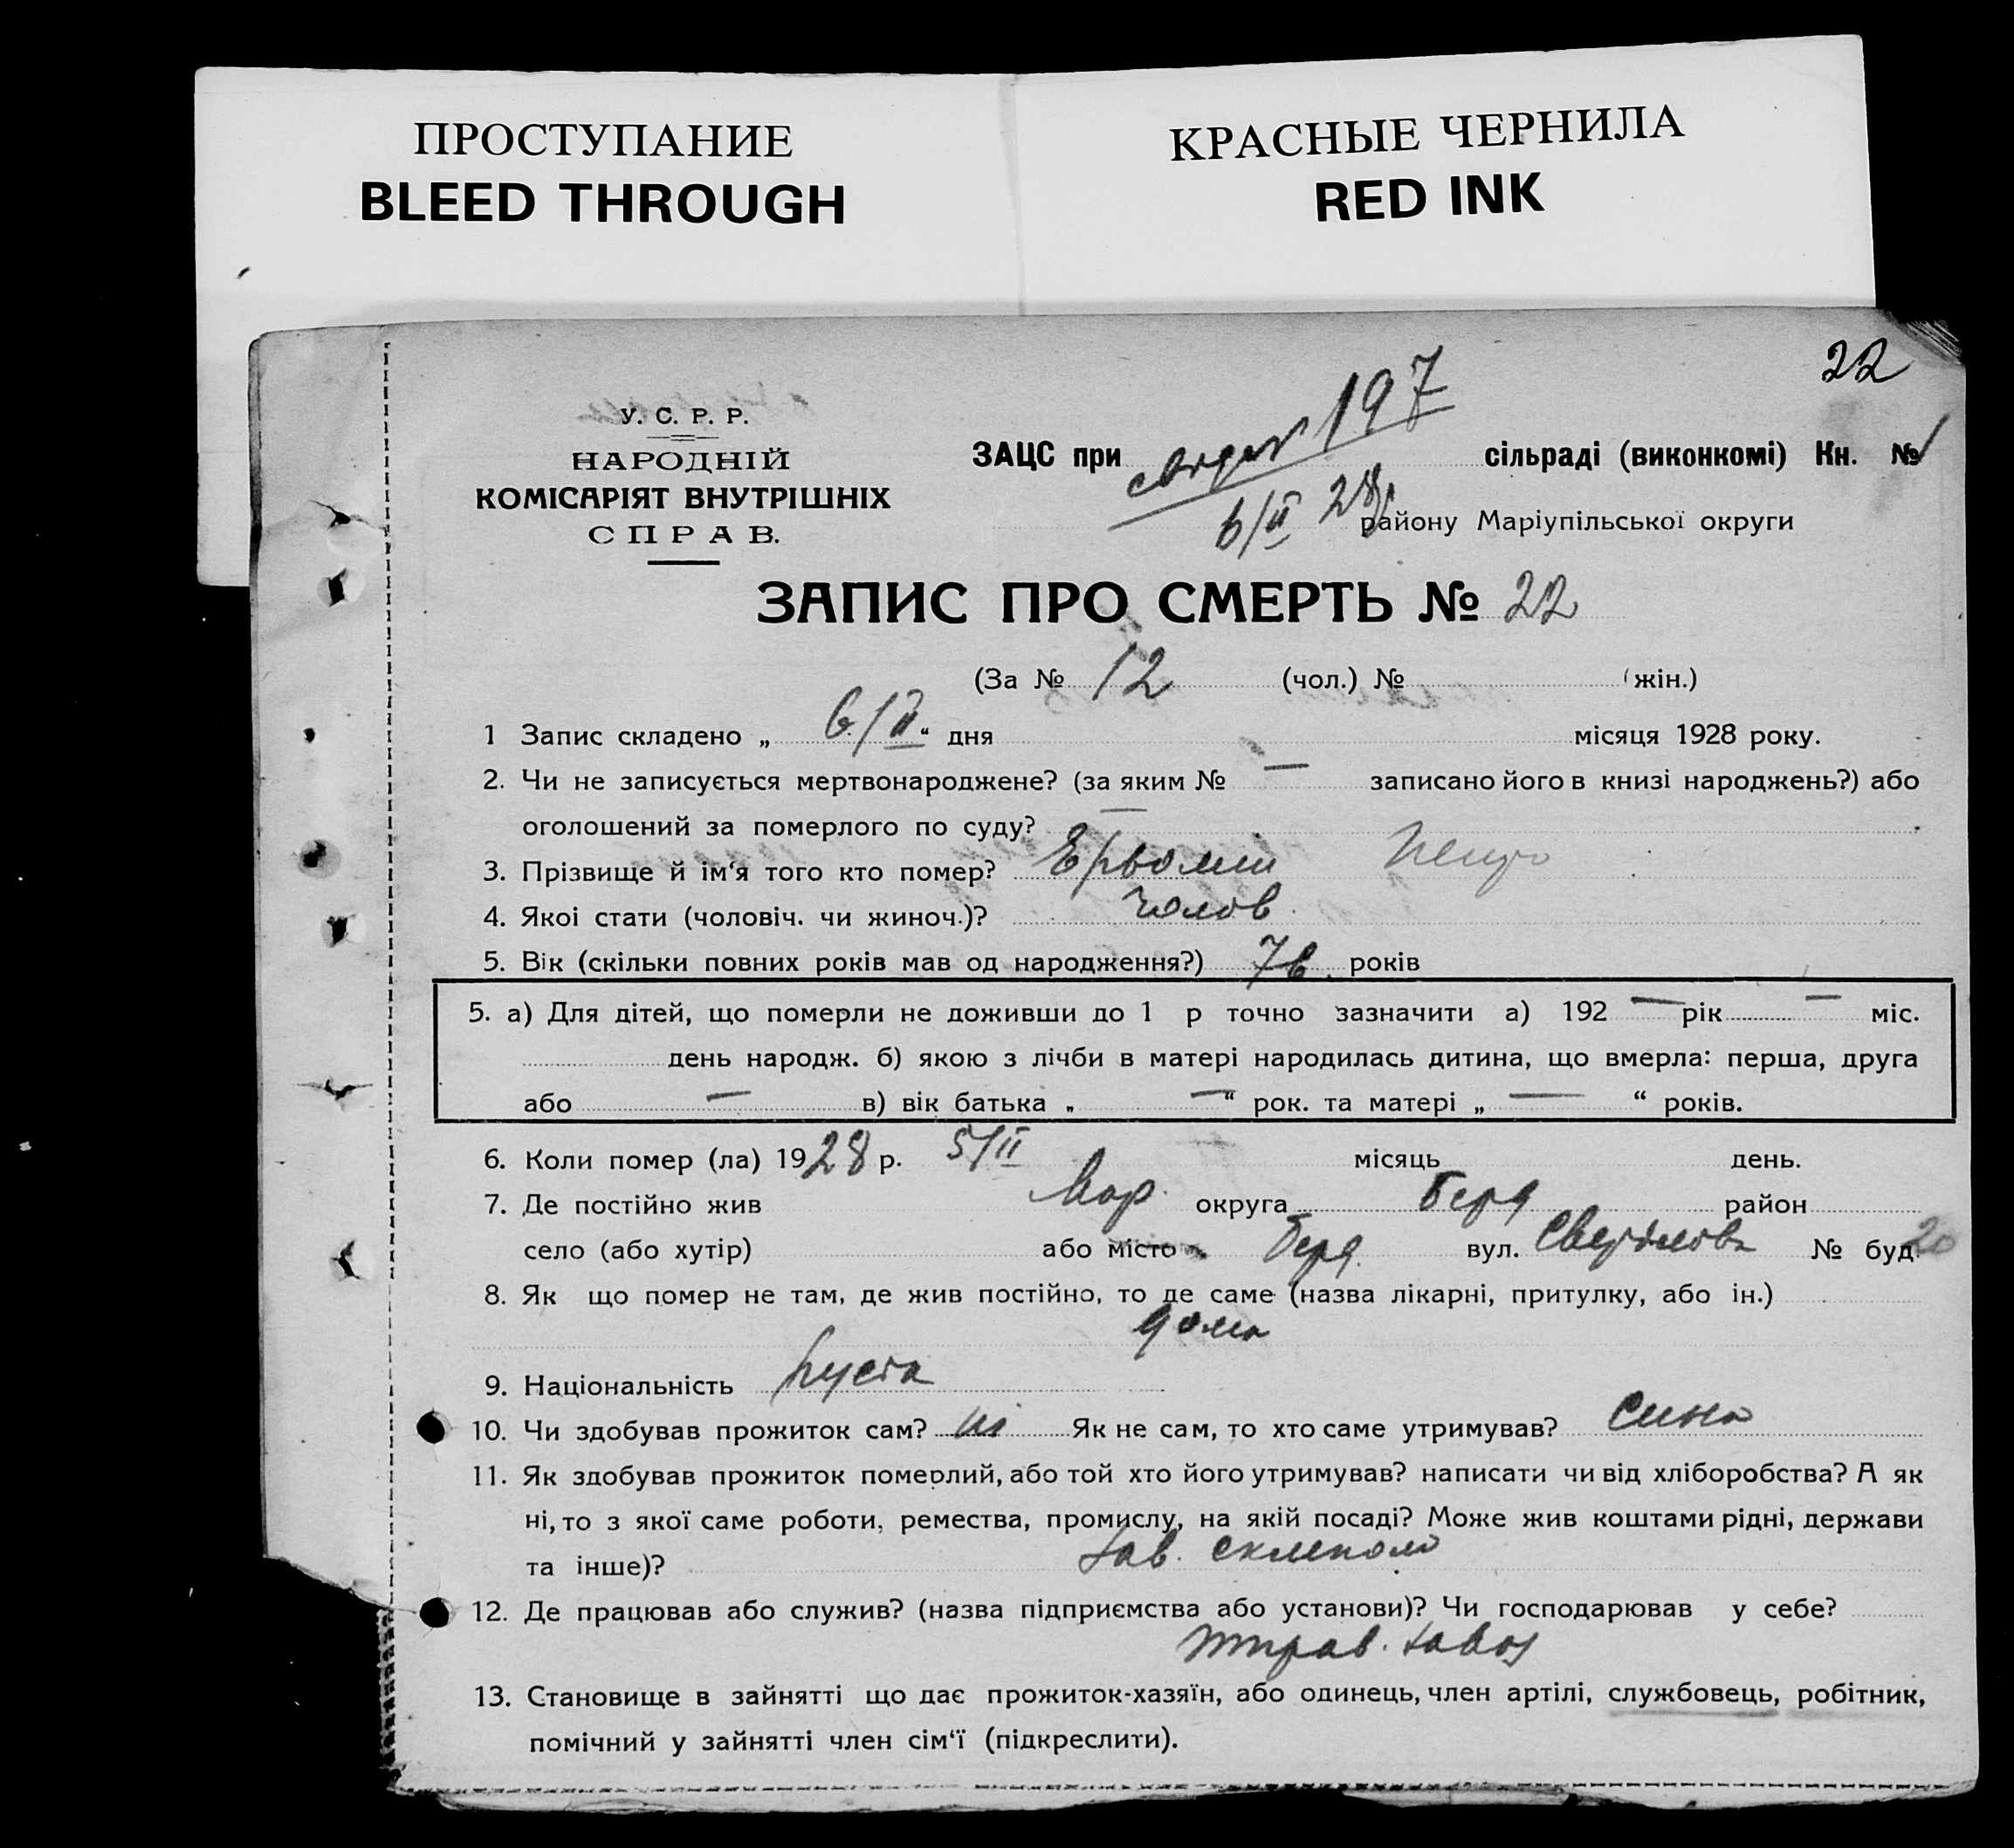 ПРОСТУПАНИЕ
BLEED THROUGH
КРАСНЫЕ ЧЕРНИЛА
RED INK
22
У. С. Р. Р.
НАРОДНІЙ
КОМІСАРІЯТ ВНУТРІШНІХ
СПРАВ.
197
ЗАЦС при сільраді (виконкомі) Кн. № 1
6/II 28р
району Маріупільської округи
ЗАПИС ПРО СМЕРТЬ № 22
(За № 12 (чол.) № (жін.)
1 Запис складено „ 6/II “ дня місяця 1928 року.
2. Чи не записується мертвонароджене? (за яким № — записано його в книзі народжень?) або
оголошений за померлого по суду? —
3. Прізвище й ім‘я того кто помер?
4. Якоі стати (чоловіч. чи жиноч.)? Чолов.
5. Вік (скільки повних років мав од народження?) років
5. а) Для дітей, що померли не доживши до 1 р точно зазначити а) 192 — рік — міс.
день народж. б) якою з лічби в матері народилась дитина, що вмерла: перша, друга
або — в) вік батька „ — “ рок. та матері „ — “ років.
6. Коли помер (ла) 1928 р. 5/II місяць день.
7. Де постійно жив Мар. округа Берд район
село (або хутір) або місто Берд. вул. Свердлова № буд. 20
8. Як що помер не там, де жив постійно, то де саме (назва лікарні, притулку, або ін.)
дома
9. Національність
10. Чи здобував прожиток сам? ні Як не сам, то хто саме утримував? сина
11. Як здобував прожиток померлий, або той хто його утримував? написати чи від хліборобства? А як
ні, то з якої саме роботи, ремества, промислу, на якій посаді? Може жив коштами рідні, держави
та інше)? Зав. складом
12. Де працював або служив? (назва підприємства або установи)? Чи господарював у себе?
завод
13. Становище в зайнятті що дає прожиток-хазяїн, або одинець, член артілі, службовець, робітник,
помічний у зайнятті член сім‘ї (підкреслити).